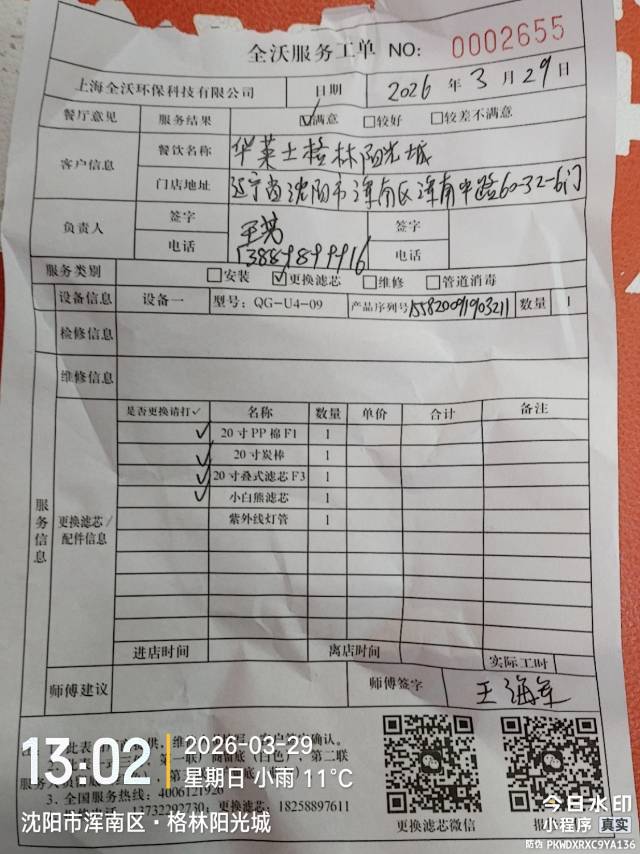 全沃服务工单 NO: 0002655
上海全沃环保科技有限公司 日期 2026 年 3 月 29 日
餐厅意见 服务结果 ☑满意 □较好 □较差不满意
客户信息 餐饮名称 华莱士格林阳光城
门店地址 辽宁省沈阳市浑南区浑南中路60-32-6门
负责人 签字 签字
电话 13889899916 电话
服务类别 □安装 ☑更换滤芯 □维修 □管道消毒
设备信息 设备一 型号: QG-U4-09 产品序列号 15582009190321 数量 1
检修信息
维修信息
服务信息
更换滤芯/配件信息
是否更换请打✓ 名称 数量 单价 合计 备注
✓ 20寸PP棉F1 1
✓ 20寸炭棒 1
✓ 20寸叠式滤芯F3 1
✓ 小白熊滤芯 1
紫外线灯管 1
进店时间 离店时间 实际工时
师傅建议 师傅签字 王海军
3. 全国服务热线: 4006121926
13732292730; 更换滤芯: 18258897611
更换滤芯微信
13:02 2026-03-29
星期日 小雨 11°C
沈阳市浑南区·格林阳光城
今日水印
小程序 真实
防伪 PKWDXRXC9YA136